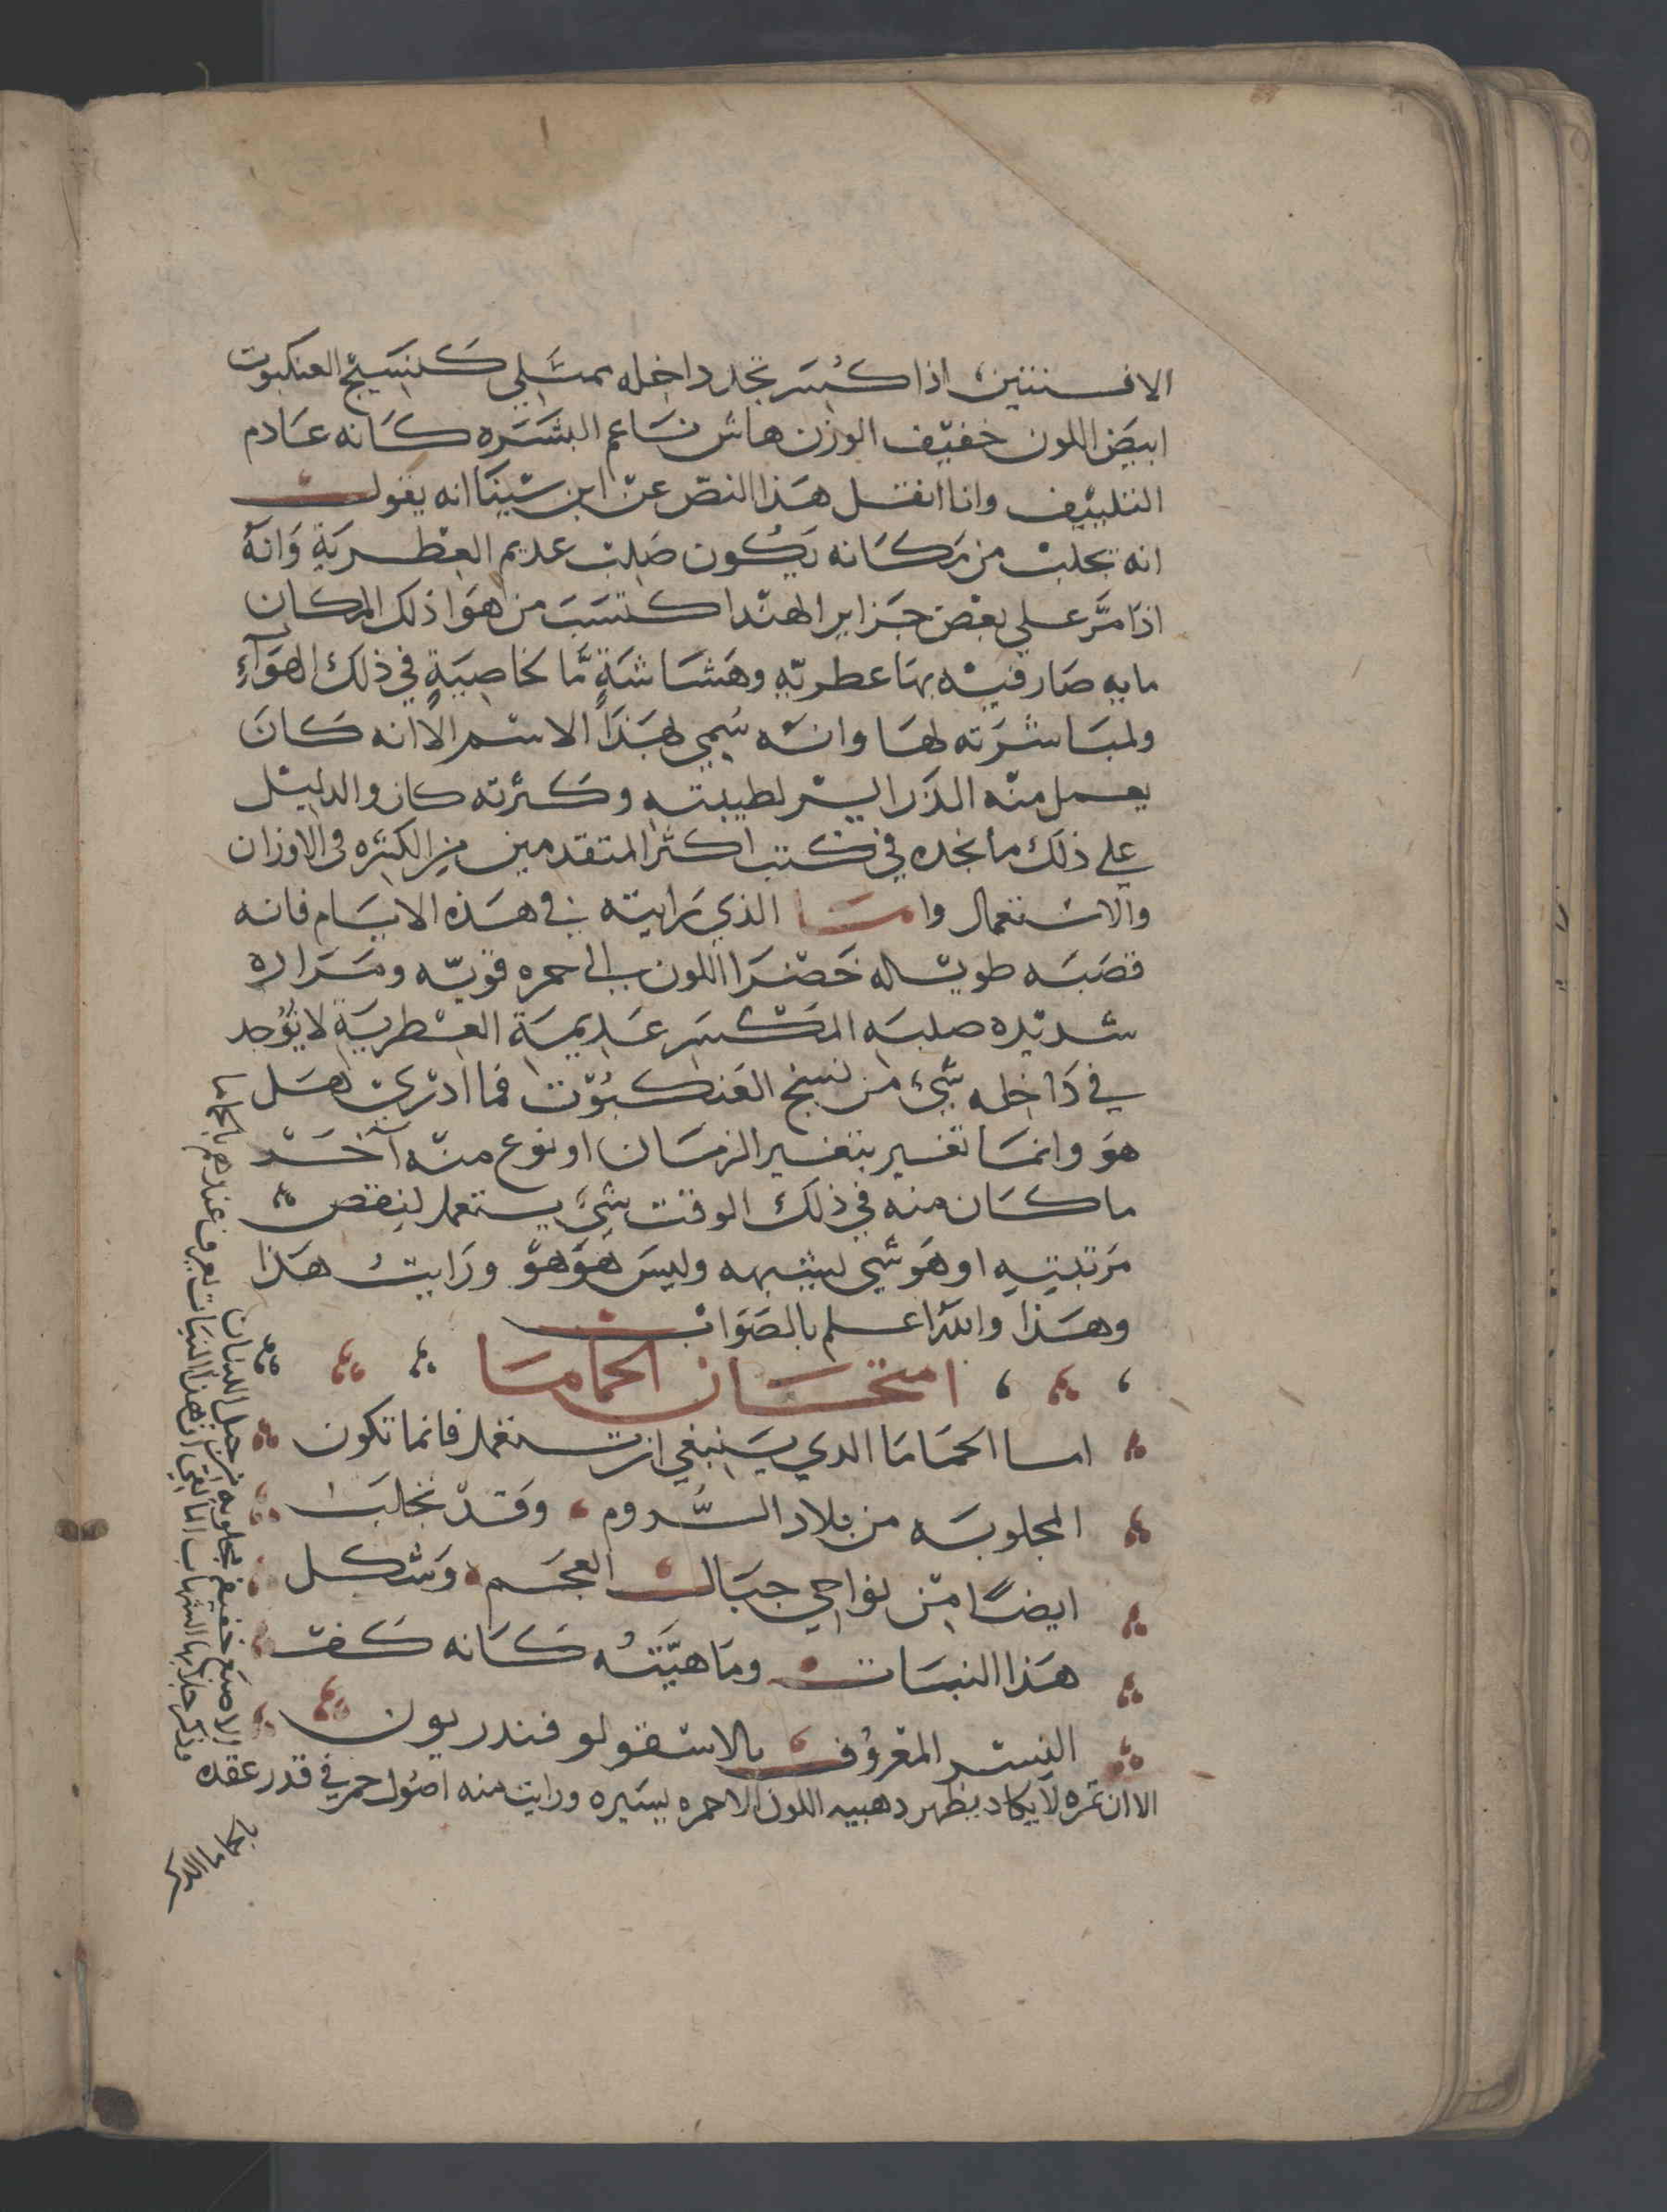 الافسنتين، اذا كُسَر تجد داخله ممتلي كنسيْج العنكبوت
ابيَض اللون خفيْف الوزن هاش نَاعم البشَرَه كَانه عَادم
التلييْف وانا انقل هَذا النصّ عنْ ابن سْينَا انه يقول
انه تجلبْ من مَكَانه يَكُون صَلبْ عديم العِطْريَةِ وَانهُ
اذا مرَّ علي بعْض جَزاير الهنْد اكتسَبَ من هوَا ذلك المكان
مابه صَار فيْه بهَا عطريّهِ وهَشَاشَةٍ مَّا لخاصِيَةٍ في ذلك الهوَآءِ
ولمبَاشَرَته لهَا وانَه سُمي بهَذَا الاسْم الا انه كَانَ
يعمل منْه الذرَاير لطيبته وكثرته كان والدليْل
علي ذلك ما نجده في كتب اكثر المتقدمين من الكثره في الاوزان
والاسْتعمال وامَا الذي رَايته في هَذه الايَام فانه
قصَبَه طويْله خَضْرَا اللون الي حمره قويّه ومَرَاره
شديْده صلبَه المكْسَر عَديمَة العِطريَةِ لا يوُجد
في دَاخله شَيْ من نسج العَنكبوُت فما ادْري هَل
هوَ وانمَا تغير بتغير الزمَان او نوع منْه آخَرْ
ما كَان منه في ذلك الوقت شَيْ يستعمل لنِقص
مَرتبتِهِ او هَو شَي يشبهه وليسَ هَوَ هوَّ ورَايتُ هَذا
وهَذا والله اعلم بالصَوَابْ
امتحَان الحمَامَا
اما الحمَامَا الدي يَنبغي ان تستعْمَل فانما تكون
المجلوبَه من بلاد الرُّوم، وقدْ تجلبَ
ايضًا منْ نواحي جبَال العجَم، وَشكل
هَذا النبَات ومَاهيَّتهُ كَانه كَف
النِسْر المعْروُف بالاسْقولوفندريون
الا ان ثمره لا يكاد يظهر دهبيه اللون الا حمره يسَيره ورايت منه اصُول حمر في قدر عقده
الاصبَع خفيفه مجلوبه من جبل اللبنان
وذكر جلابها الشهاب المالقي ان هذا النبَات يعرف عندهم بالحماما